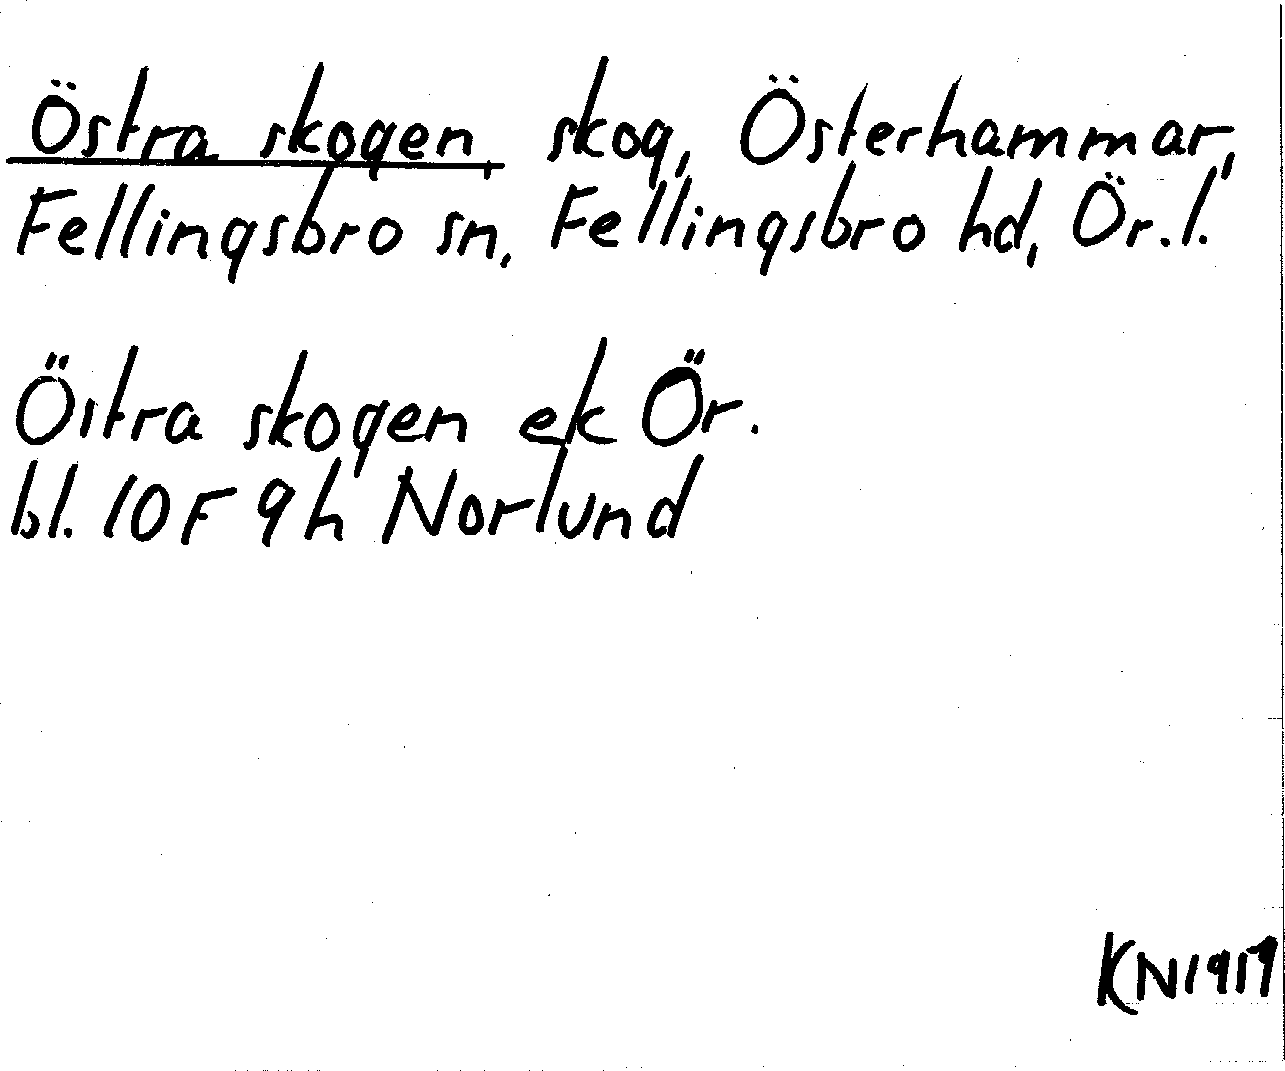 Östra skogen, skog, Österhammar,
Fellingsbro sn, Fellingsbro hd, Ör.l.
Östra skogen ek Ör.
bl. 10F 9h Norlund
KN1917